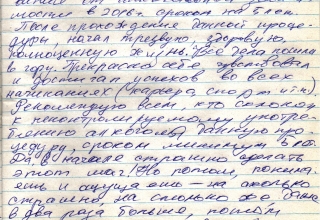 в 2016г. сроком на 5 лет.
После прохождения данной проце-
дуры, начал трезвую, здоровую,
полноценную жизнь. Все дела пошли
в гору. Прекрасно себя чувствовал
и достигал успехов во всех
начинаниях (карьера, спорт и т.п.)
Рекомендую всем, кто склонен
к неконтролируемому употре-
блению алкоголя, данную про-
цедуру, сроком минимум 5 лет
Да! В начале страшно сделать
этот шаг! Но потом, понима-
ешь и ощущаешь — на сколько
страшно, на столько же
в два раза больше, потом